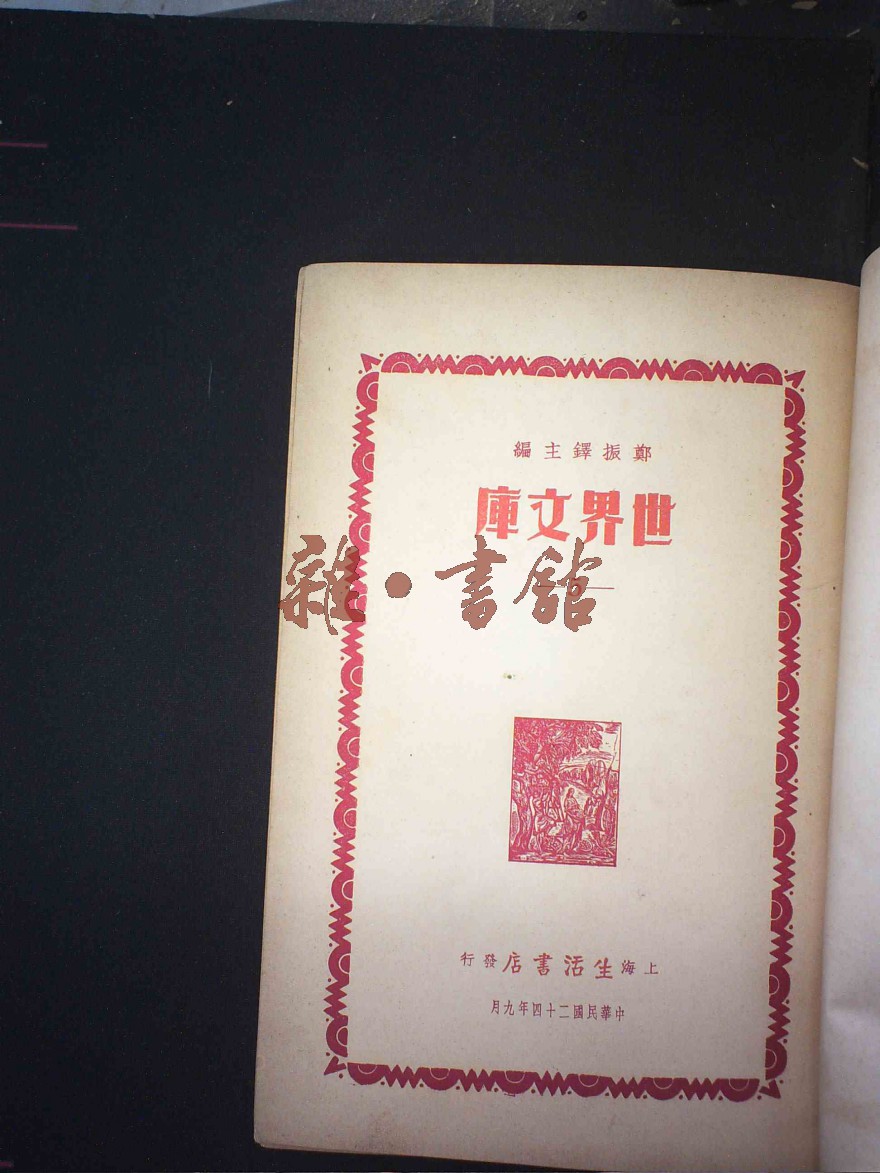 鄭振鐸主編
世界文庫
雜·書館
上海生活書店發行
中華民國二十四年九月